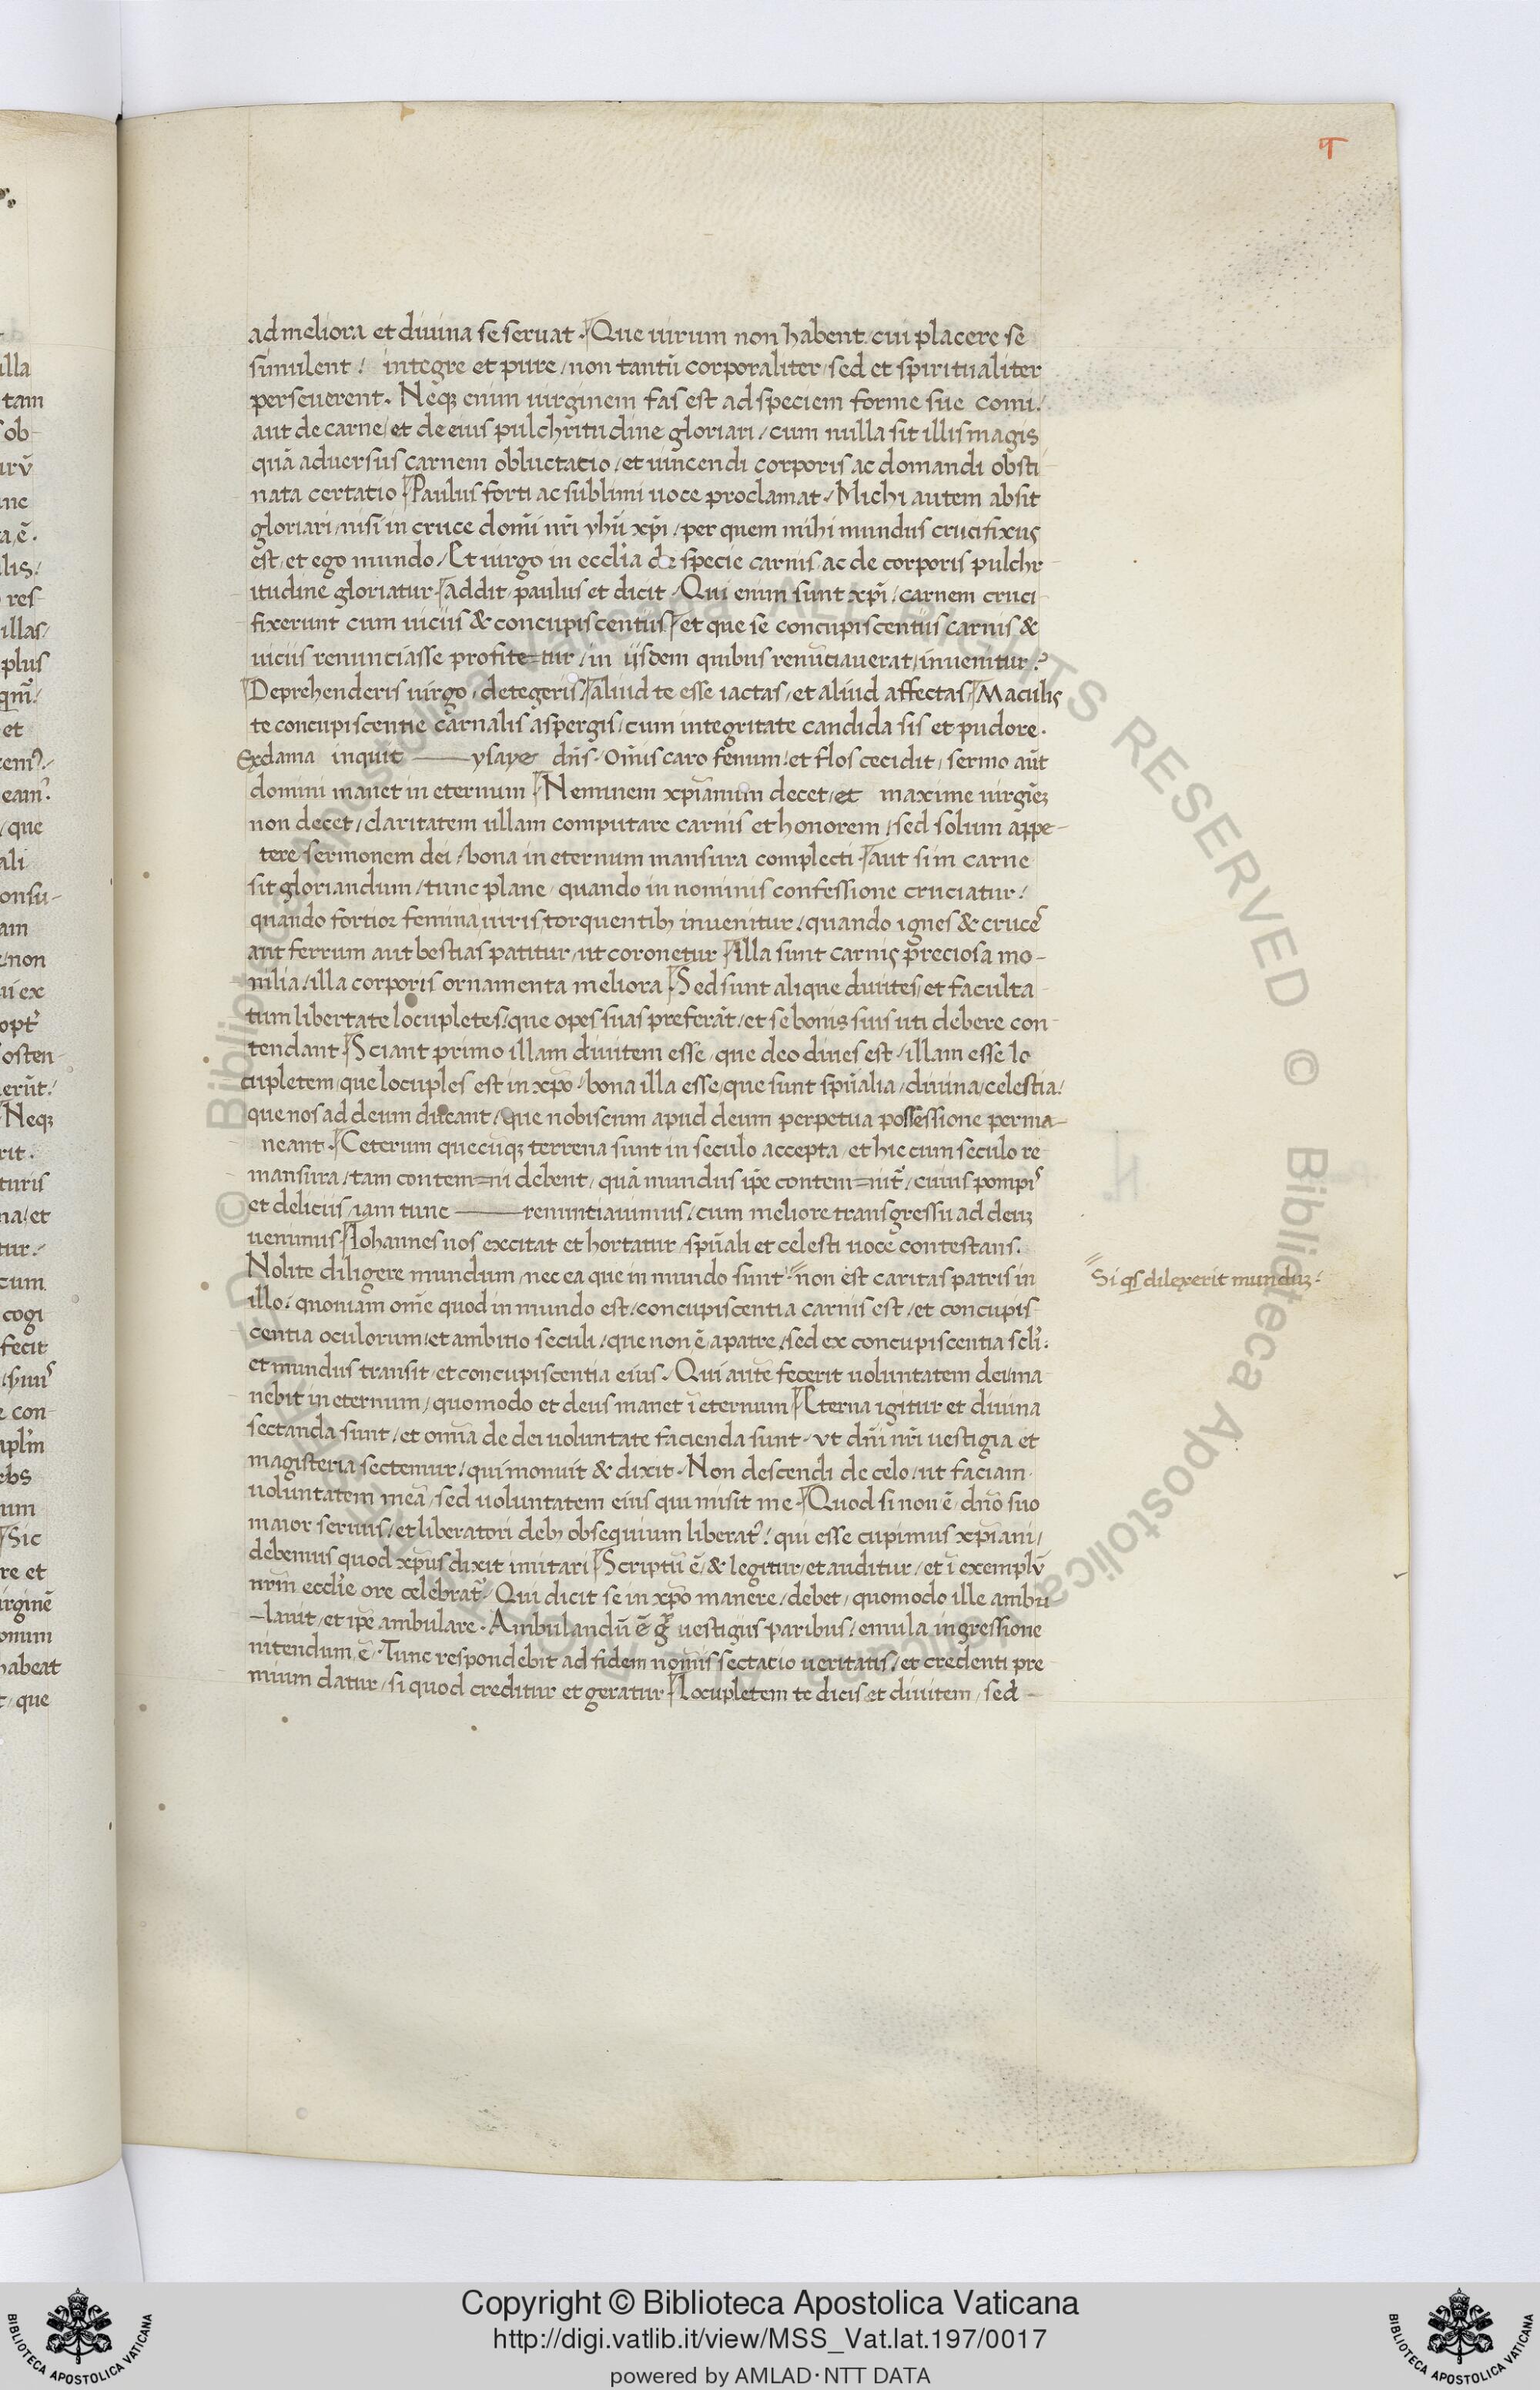 ad meliora et diuina se seruat. Que uirum non habent cui placere se
simulent / integre et pure / non tantũ corporaliter / sed et spiritualiter
perseuerent. Neqȝ enim uirginem fas est ad speciem forme sue comi /
aut de carne / et de eius pulchritudine gloriari / cum nulla sit illis magis
quã aduersus carnem obluctatio / et uincendi corporis ac domandi obsti
nata certatio Paulus forti ac sublimi uoce proclamat. Michi autem absit
gloriari / nisi in cruce domĩ nr̃i yhũ xpĩ / per quem mihi mundus crucifixus
est / et ego mundo / Et uirgo in ecclĩa de specie carnis ac de corporis pulchr
itudine gloriatur addit paulus et dicit. Qui enim sunt xpĩ / carnem cruci
fixerunt cum uiciis & concupiscentiis et que se concupiscentiis carnis &
uiciis renunciasse profite=tur / in ijsdem quibus renũciauerat / inuenitur?
Deprehenderis uirgo / detegeris / aliud te esse iactas / et aliud affectas / Maculis
te concupiscentie carnalis aspergis / cum integritate candida sis et pudore.
Exclama inquit —— ysaye dñs. Om̃is caro fenum / et flos cecidit / sermo aũt
domini manet in eternum Neminem xpiãnum decet / et maxime uirgiẽȝ
non decet / claritatem ullam computare carnis et honorem / sed solum appe-
tere sermonem dei / bona in eternum mansura complecti. aut si in carne
sit gloriandum / tunc plane / quando in nominis confessione cruciatur /
quando fortior femina uiris torquentibȝ inuenitur / quando ignes & cruces
aut ferrum aut bestias patitur / ut coronetur illa sunt carnis preciosa mo-
nilia / illa corporis ornamenta meliora Sed sunt alique diuites / et faculta
tum libertate locupletes / que opes suas preferãt / et se bonis suis uti debere con
tendant Sciant primo illam diuitem esse / que deo diues est / illam esse lo
cupletem / que locuples est in xpõ / bona illa esse / que sunt spũalia / diuina / celestia /
que nos ad deum ducant / que nobiscum apud deum perpetua possessione perma-
neant. Ceterum quecũqȝ terrena sunt in seculo accepta / et hic cum seculo re
mansura / tam contem=ni debent / quã mundus ip̃e contem=nit̃ / cuius pompis
et deliciis / iam tunc —— renuntiauimus / cum meliore transgressu ad deuȝ
uenimus Iohannes nos excitat et hortatur / spũali et celesti uoce contestans.
Nolite diligere mundum / nec ea que in mundo sunt // non est caritas patris in
Si qs dilexerit munduȝ /
illo / quoniam om̃e quod in mundo est / concupiscentia carnis est / et concupis
centia oculorum / et ambitio seculi / que non ẽ a patre / sed ex concupiscentia scl̃i.
et mundus transit / et concupiscentia eius. Qui autẽ fecerit uoluntatem dei / ma
nebit in eternum / quomodo et deus manet ĩ eternum Eterna igitur et diuina
sectanda sunt / et om̃ia de dei uoluntate facienda sunt / ut dñi nr̃i uestigia et
magisteria sectemur / qui monuit & dixit. Non descendi de celo / ut faciam
uoluntatem meã / sed uoluntatem eius qui misit me. Quod si non ẽ dñõ suo
maior seruus / et liberatori debȝ obsequium liberat̃ / qui esse cupimus xpĩani /
debemus quod xpũs dixit imitari Scriptũ ẽ / & legitur / et auditur / et ĩ exemplũ
nrĩm eccl̃ie ore celebrat̃. Qui dicit se in xpõ manere / debet / quomodo ille ambu
-lauit / et ip̃e ambulare. Ambulandũ ẽ g̃ uestigiis paribus / emula ingressione
nitendum ẽ. Tunc respondebit ad fidem nom̃is sectatio ueritatis / et credenti pre
mium datur / si quod creditur et geratur Locupletem te dicis et diuitem / sed -
Copyright © Biblioteca Apostolica Vaticana
http://digi.vatlib.it/view/MSS_Vat.lat.197/0017
powered by AMLAD·NTT DATA